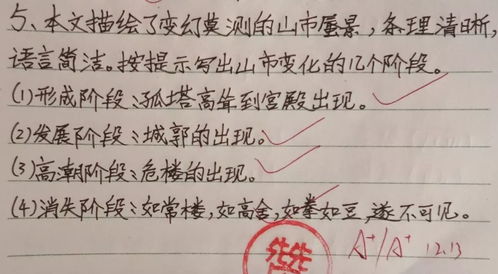 5、本文描绘了变幻莫测的山市蜃景，条理清晰，
语言简洁。按提示写出山市变化的几个阶段。
(1)形成阶段：孤塔高耸到宫殿出现。
(2)发展阶段：城郭的出现。
(3)高潮阶段：危楼的出现。
(4)消失阶段：如常楼，如高舍，如拳如豆，遂不可见。
A+/A+ 12.13